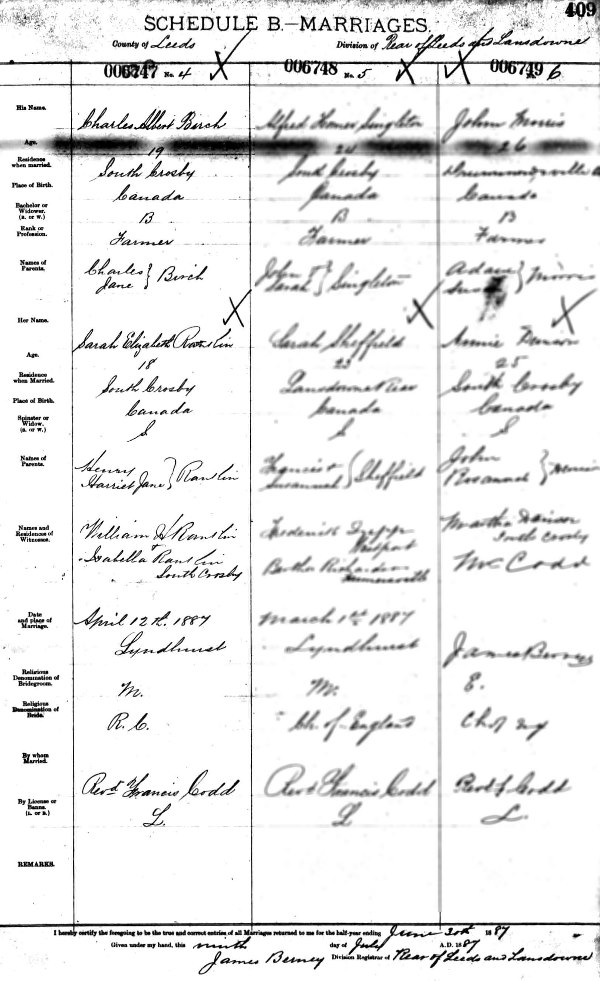 409
SCHEDULE B.—MARRIAGES,
County of Leeds Division of Rear of Leeds and Lansdowne
006747 No. 4 006748 No. 5 006749 6
His Name. Charles Albert Birch Alfred Homer Singleton John Morris
Age. 19 24 26
Residence when married. South Crosby South Crosby
Place of Birth. Canada Canada Canada
Bachelor or Widower. (B. or W.) B B B
Rank or Profession. Farmer Farmer Farmer
Names of Parents. Charles Jane } Birch John Sarah } Singleton Adam } Morris
Her Name. Sarah Elizabeth Ranslin Sarah Sheffield Annie
Age. 18 23 25
Residence when Married. South Crosby Lansdowne Rear South Crosby
Place of Birth. Canada Canada Canada
Spinster or Widow. (S. or W.) S S S
Names of Parents. Henry Harriet Jane } Ranslin Francis + Susannah } Sheffield John Rosannah }
Names and Residences of Witnesses. William H Ranslin Frederick Martha
Westport South Crosby
Isabella Ranslin Bertha Richardson Mr Codd
South Crosby
Date and place of Marriage. April 12th. 1887 March 1st 1887
Lyndhurst Lyndhurst James Berney
Religious Denomination of Bridegroom. M. M. E.
Religious Denomination of Bride. R. C. Ch. of England Ch of Eng
By whom Married. Revd Francis Codd Revd Francis Codd Revd F Codd
By License or Banns. (L. or B.) L. L L.
REMARKS.
I hereby certify the foregoing to be the true and correct entries of all Marriages returned to me for the half-year ending June 30th 1887
Given under my hand, this ninth day of July A.D. 1887
James Berney Division Registrar of Rear of Leeds and Lansdowne